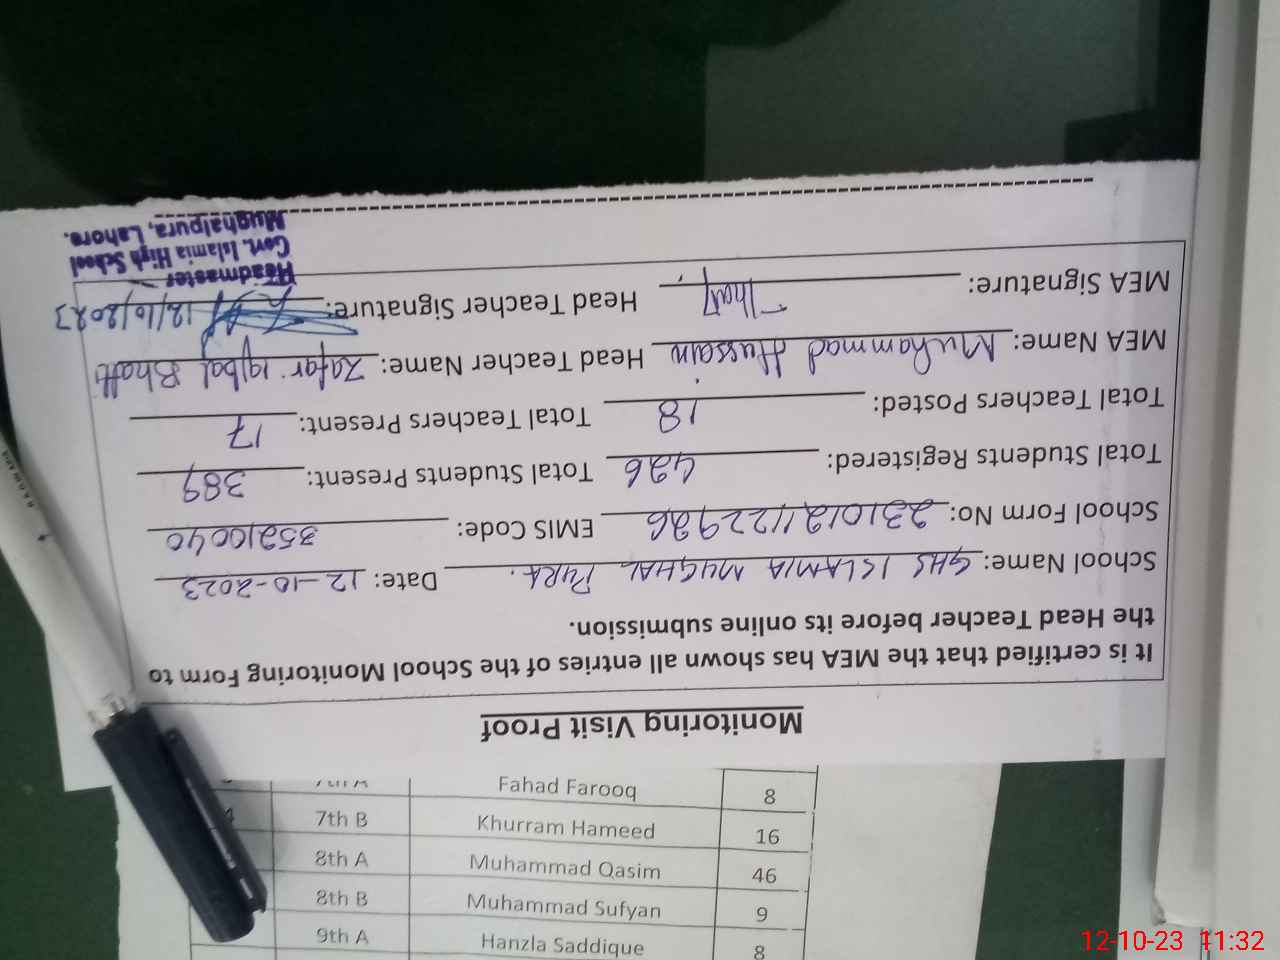 Monitoring Visit Proof
It is certified that the MEA has shown all entries of the School Monitoring Form to
the Head Teacher before its online submission.
School Name: GHS ISLAMIA MUGHAL PURA. Date: 12-10-2023
School Form No: 2310121122926 EMIS Code: 35210040
Total Students Registered: 426 Total Students Present: 389
Total Teachers Posted: 18 Total Teachers Present: 17
MEA Name: Muhammad Hussain Head Teacher Name: Zafar Iqbal Bhatti
MEA Signature: Head Teacher Signature: 12/10/2023
Headmaster
Govt. Islamia High School
Mughalpura, Lahore.
Fahad Farooq 8
7th B Khurram Hameed 16
8th A Muhammad Qasim 46
8th B Muhammad Sufyan 9
9th A Hanzla Saddique 8
12-10-23 11:32